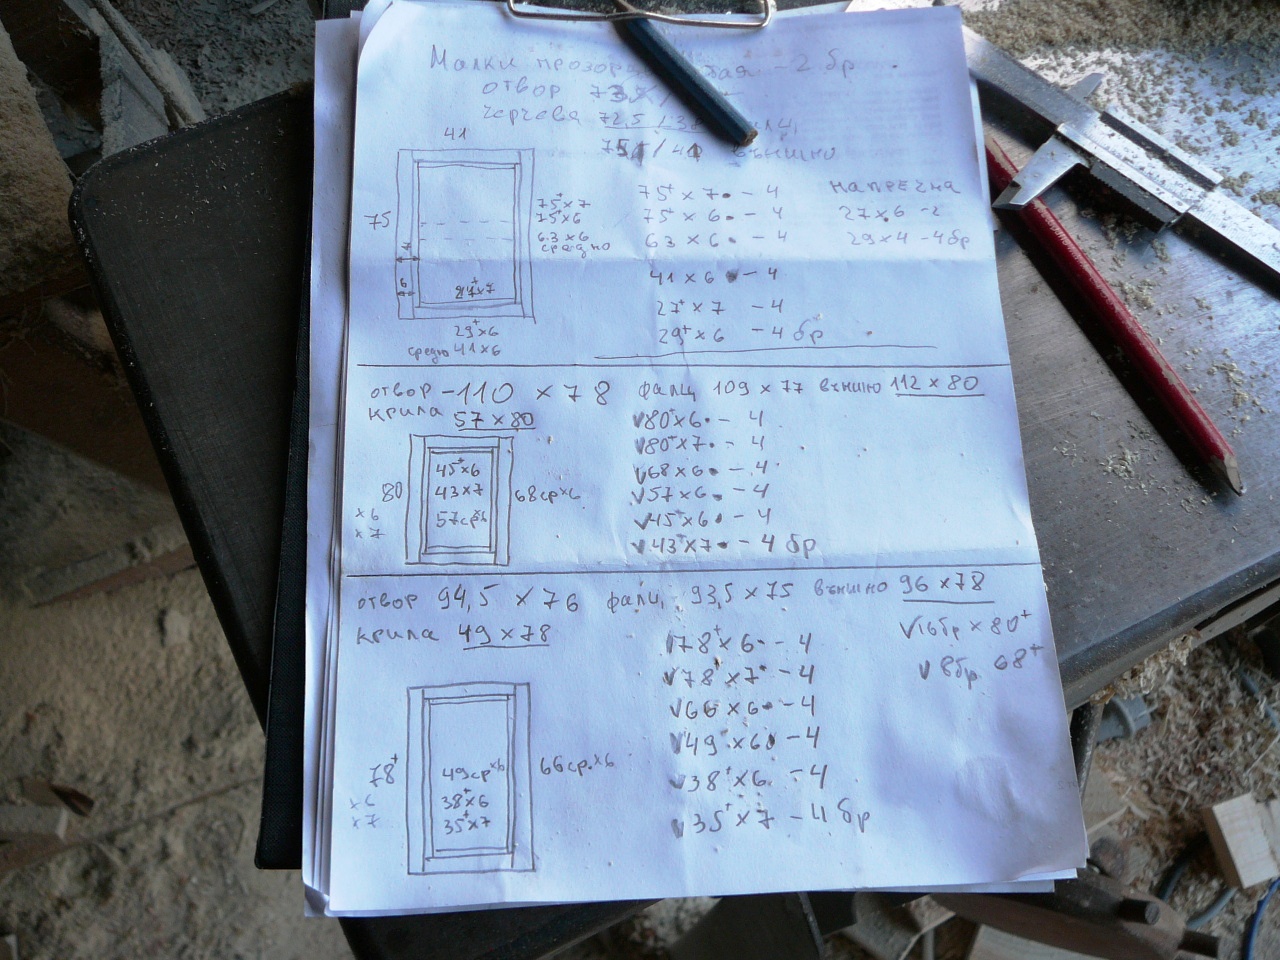 Малки прозор - 2 бр.
отвор 73
черчева 72,5 / 38
75 / 41 външно
41
75
75⁺ x 7
75⁺ x 6
63 x 6
средно
7
6
27⁺ x 7
29⁺ x 6
средно 41 x 6
75⁺ x 7 - 4
75⁺ x 6 - 4
63 x 6 - 4
41 x 6 - 4
27⁺ x 7 - 4
29⁺ x 6 - 4 бр
напречна
27 x 6 - 2
29 x 4 - 4 бр
отвор - 110 x 78 фалц 109 x 77 външно 112 x 80
крила 57 x 80
80
x 6
x 7
45⁺ x 6
43 x 7
57 ср x 6
68 ср x 6
√ 80⁺ x 6 - 4
√ 80⁺ x 7 - 4
√ 68 x 6 - 4
√ 57 x 6 - 4
√ 45⁺ x 6 - 4
√ 43⁺ x 7 - 4 бр
отвор 94,5 x 76 фалц 93,5 x 75 външно 96 x 78
крила 49 x 78
78⁺
x 6
x 7
49 ср x 6
38⁺ x 6
35⁺ x 7
66 ср. x 6
√ 78⁺ x 6 - 4
√ 78⁺ x 7 - 4
√ 66 x 6 - 4
√ 49 x 6 - 4
√ 38⁺ x 6 - 4
√ 35⁺ x 7 - 4 бр
√ 16 бр x 80⁺
√ 8 бр 68⁺